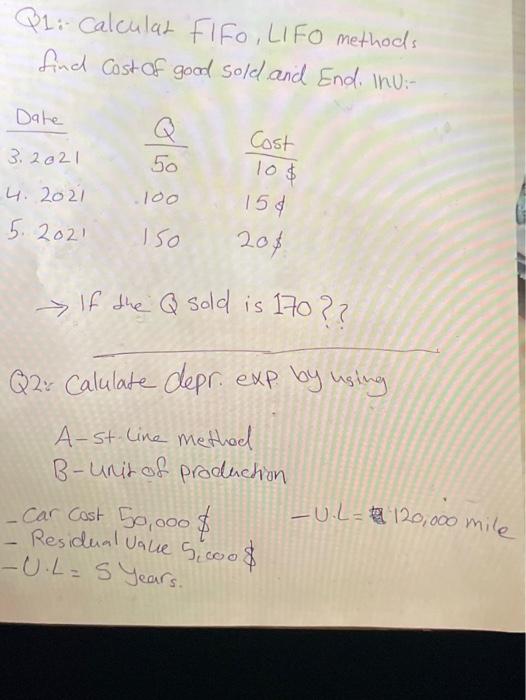 Q1:- Calculat FIFO, LIFO methods
find Cost of good sold and End. INV:-
Date Q Cost
3. 2021 50 10 $
4. 2021 100 15 $
5. 2021 150 20 $
→ If the Q sold is 170??
Q2: Calulate depr. exp by using
A - st. Line method
B - Unit of production
- Car Cost 50,000 $ - U.L = 120,000 mile
- Residual Value 5,000 $
- U.L = 5 years.